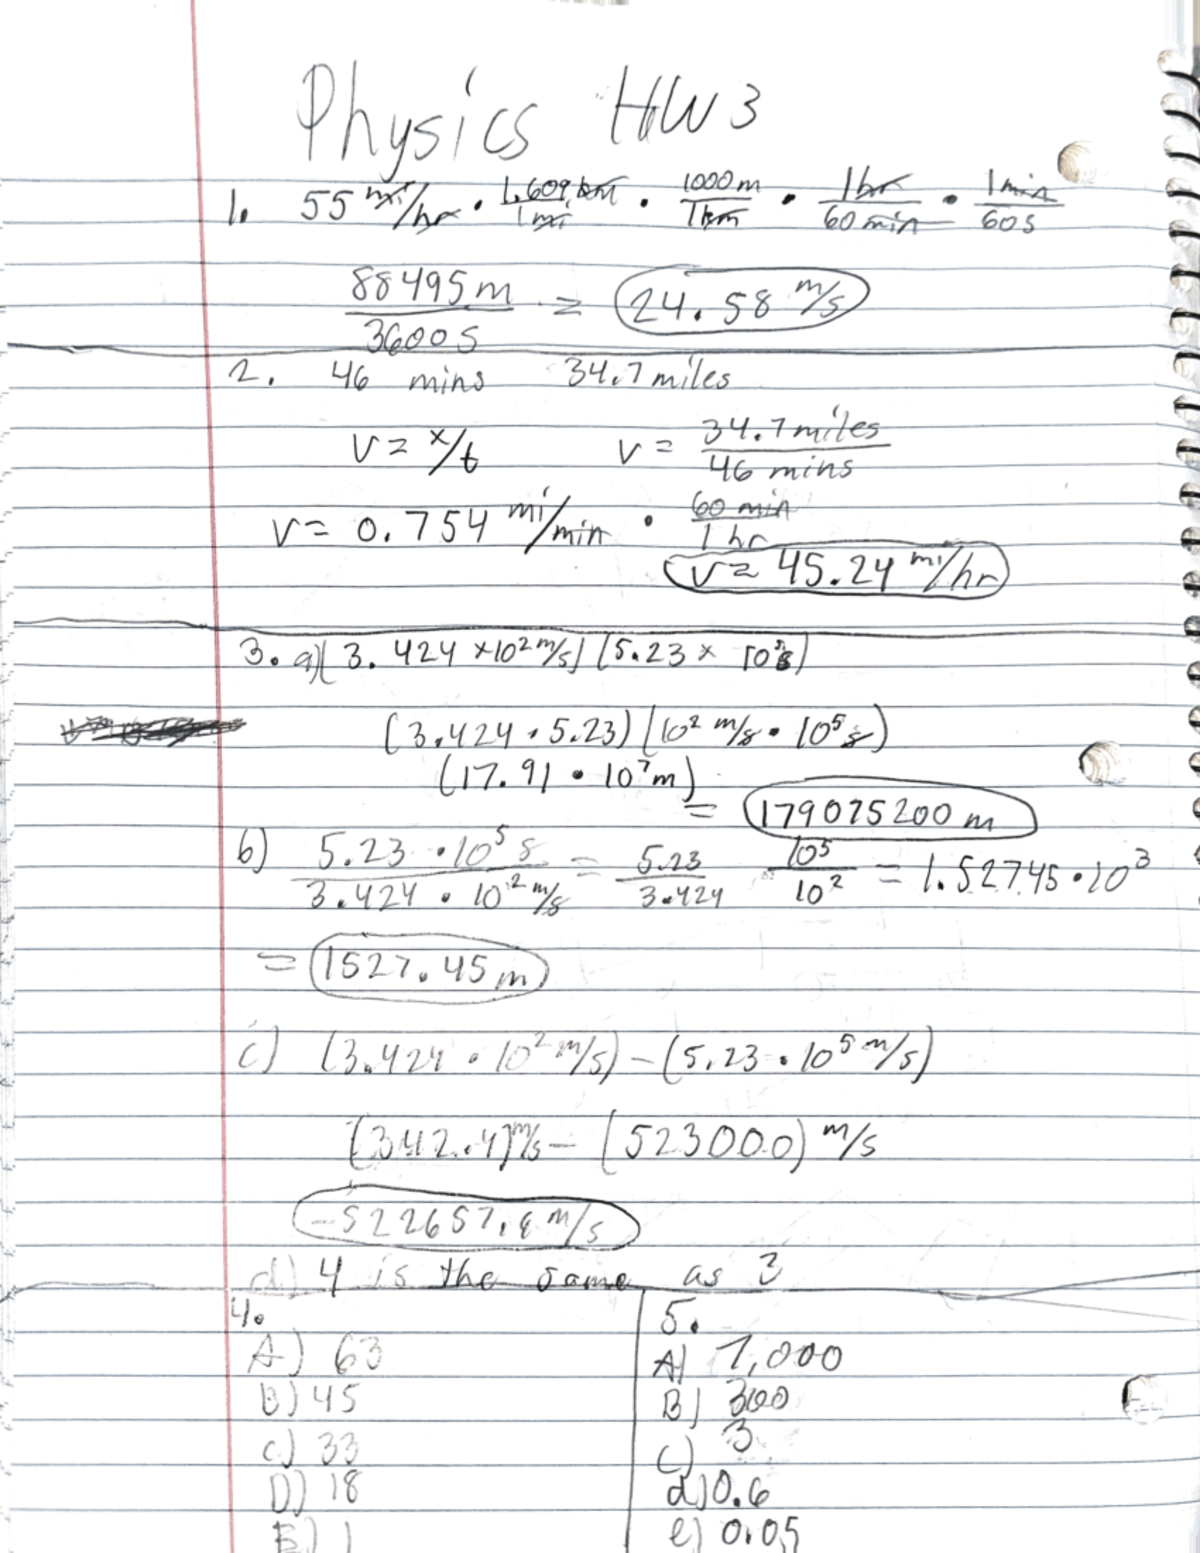 Physics HW3
1. 55 mi/hr · 1.609 km/1 mi · 1000 m/1 km · 1 hr/60 min · 1 min/60 s
88495 m/3600 s = 24.58 m/s
2. 46 mins 34.7 miles
v = x/t v = 34.7 miles/46 mins
v = 0.754 mi/min · 60 min/1 hr
v = 45.24 mi/hr
3. a) (3.424 × 10² m/s) (5.23 × 10⁵ s)
(3.424 · 5.23) (10² m/s · 10⁵ s)
(17.91 · 10⁷ m)
= 179075200 m
b) 5.23 · 10⁵ s/3.424 · 10² m/s = 5.23/3.424 · 10⁵/10² = 1.52745 · 10³
= 1527.45 m
c) (3.424 · 10² m/s) - (5.23 · 10⁵ m/s)
(342.4) m/s - (523000) m/s
-522657.6 m/s
d) 4 is the same as 3
4.
A) 63
B) 45
C) 33
D) 18
E) 1
5.
A) 1,000
B) 300
C) 3
d) 0.6
e) 0.05